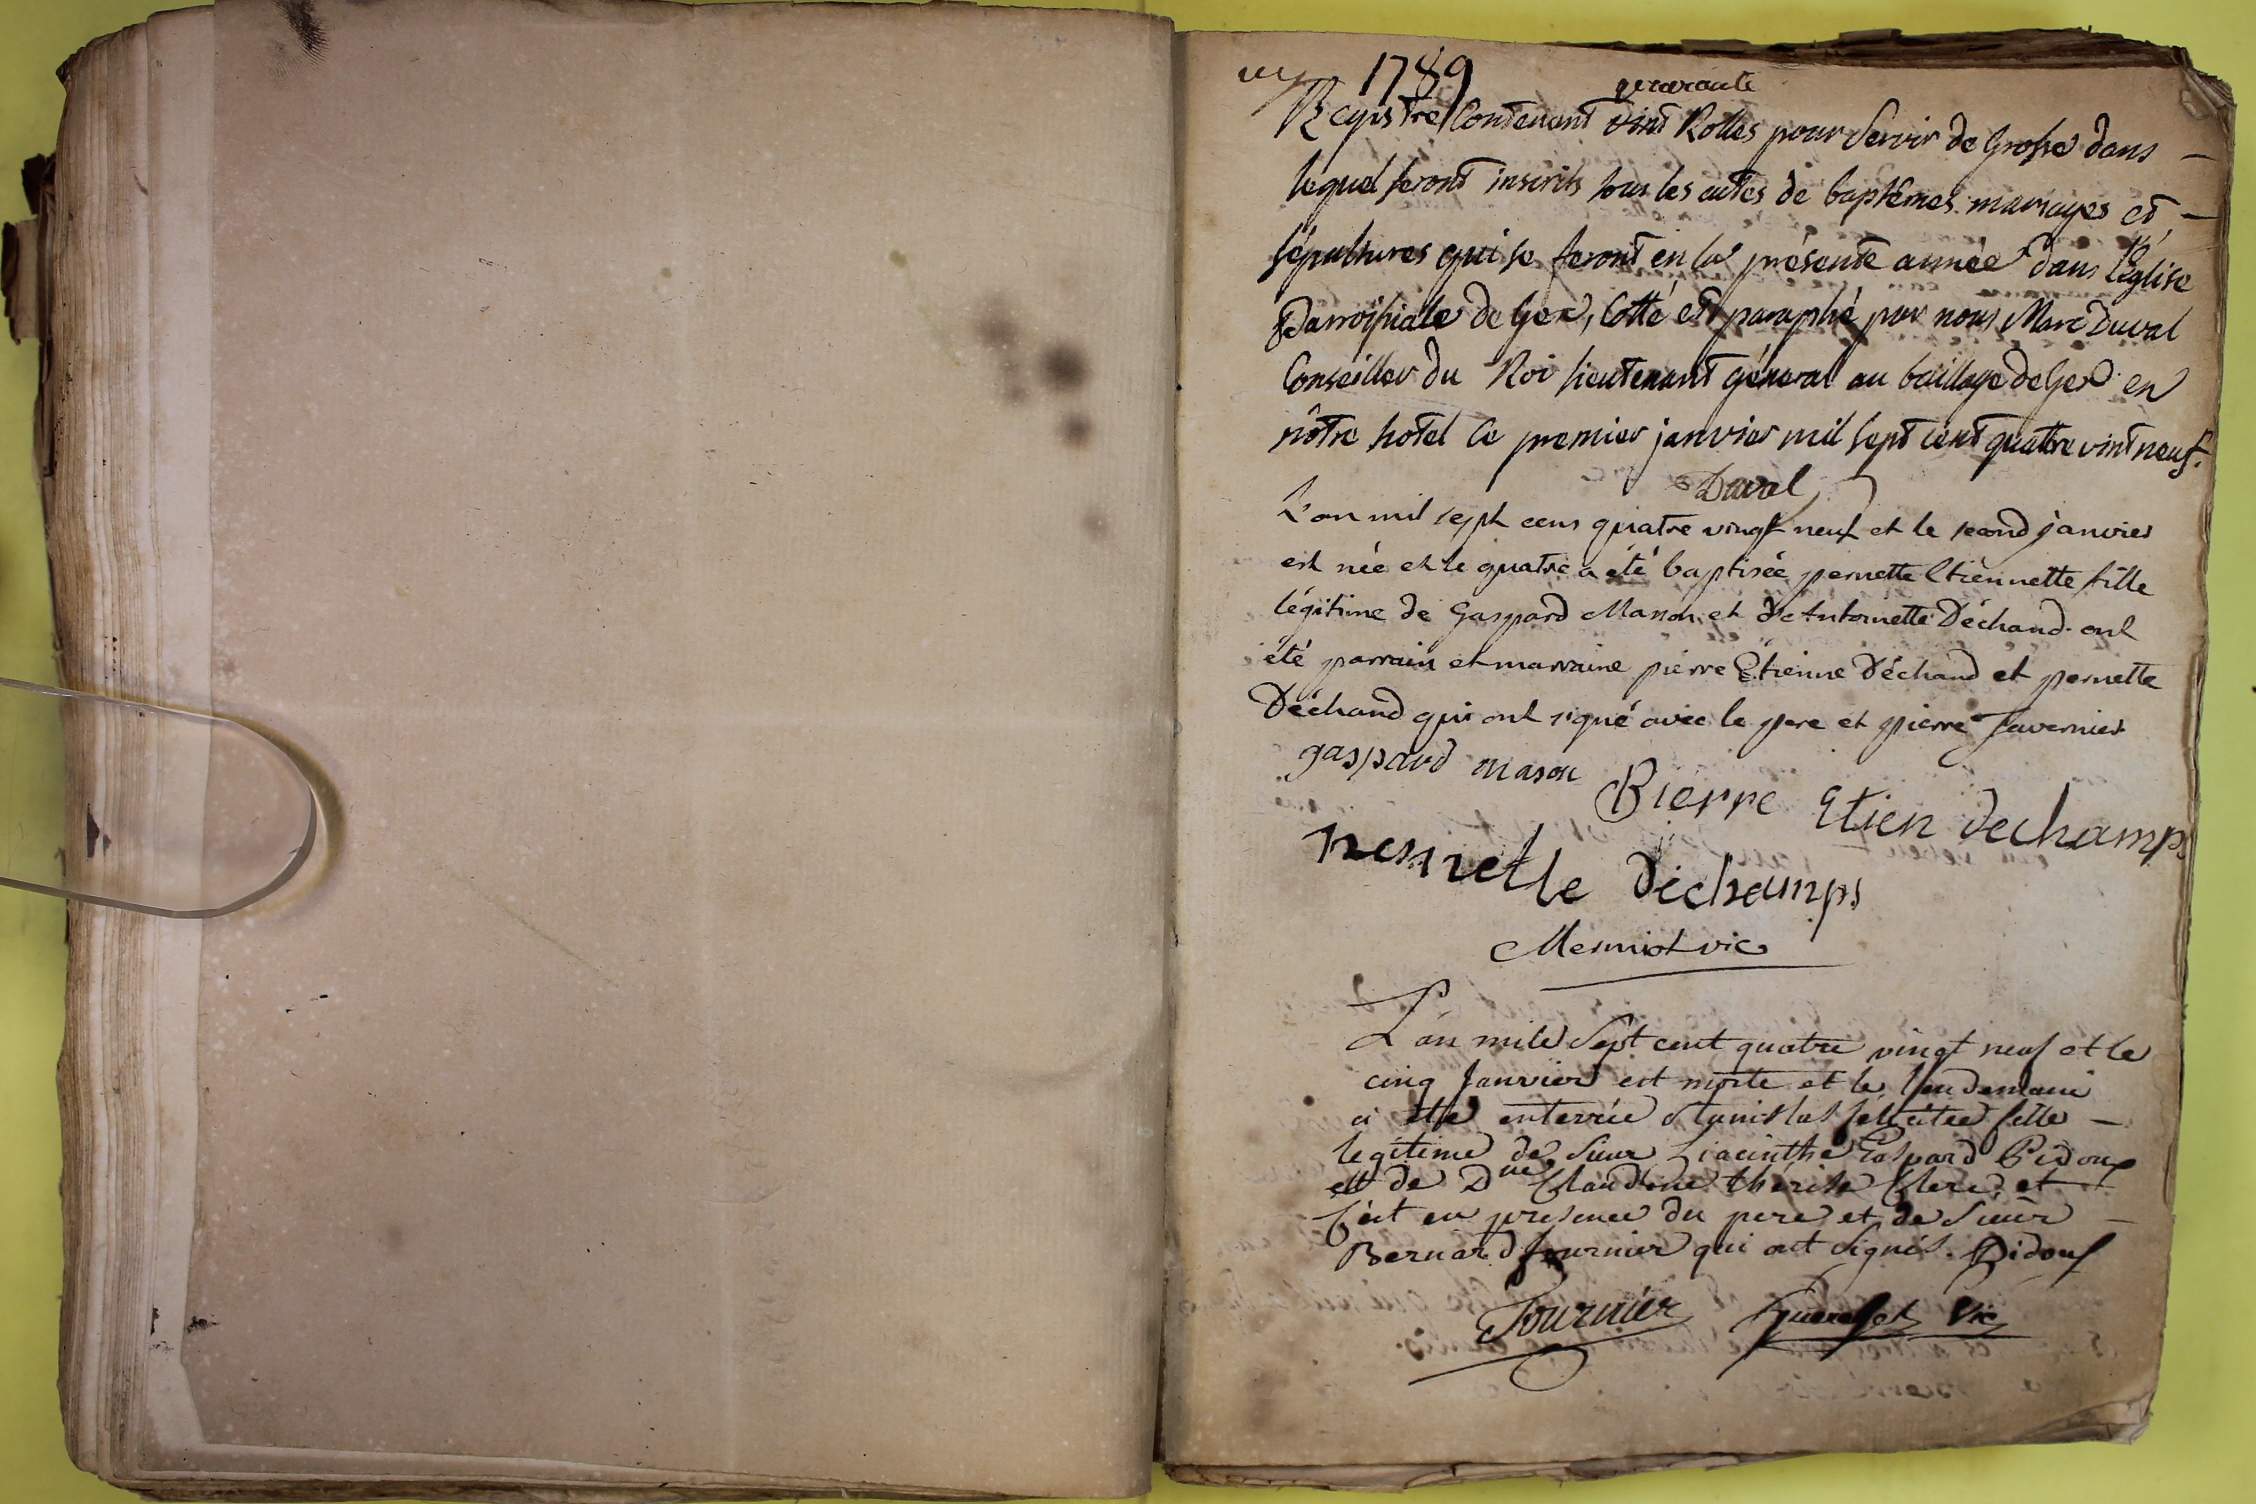 1789
quarante
Registre Contenant vint Rolles pour Servir de Grosse dans
lequel seront inscrits tous les actes de baptêmes mariages et
sépultures qui se feront en la présente année dans l'Église
Parroissiale de Gex, Cotté et paraphé par nous Marc Duval
Conseiller du Roi lieutenant général au baillage de Gex en
nôtre hotel Ce premier janvier mil sept cent quattre vint neuf.
Duval
L'an mil sept cens quatre vingt neuf et le second janvier
est née et le quatre a été baptisée pernette Etiennette fille
légitime de Gaspard Masson et de Antoinette Déchand. ont
été parrain et marraine pierre Etienne Déchand et pernette
Déchand qui ont signé avec le pere et pierre Tavernier
gaspard mason
Pierre Etien dechamps
Pernette dechamps
Mermiot vic
L'an mile Sept cent quatre vingt neuf et le
cinq Janvier est morte et le lendemain
a ette enterrée Stanislas félicitee fille
legitime de Sieur Hiacinthe Gaspard Pidoux
et de Dme Claudine therese Clerc, et
C'est en presence du pere et de Sieur
Bernard fournier qui ont signés. Pidoux
Fournier
Vic